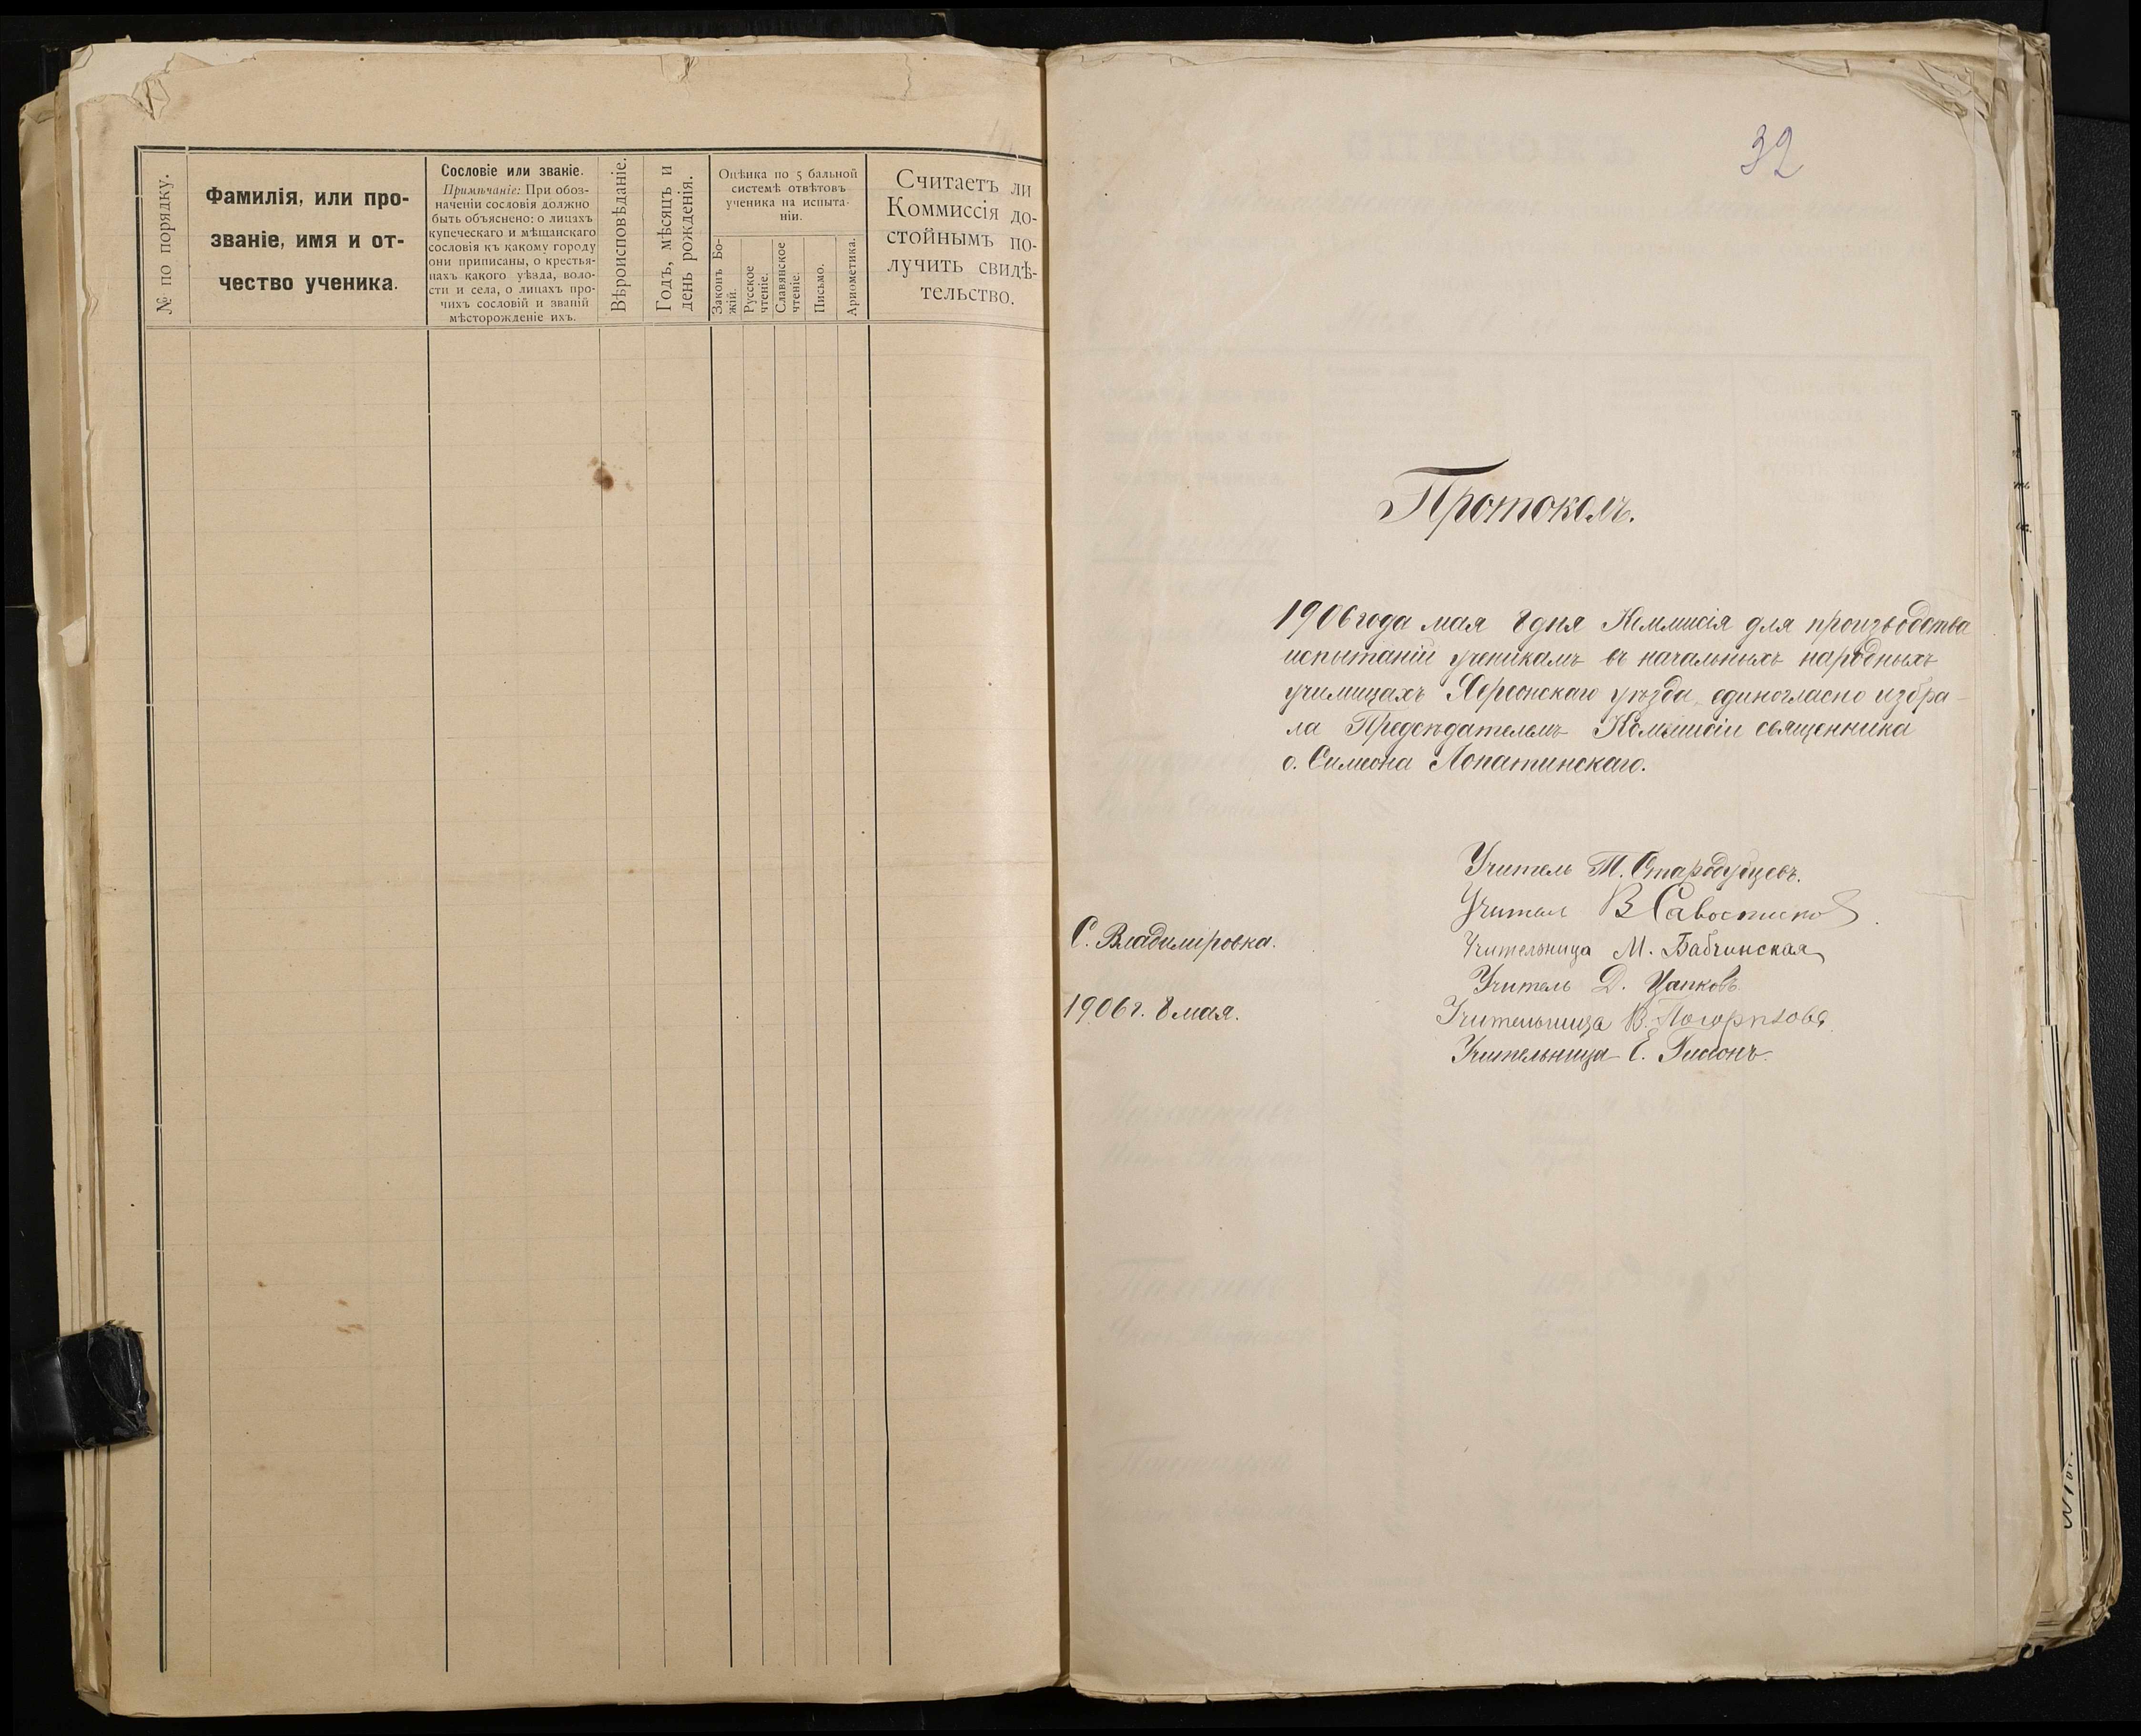 № по порядку.
Фамилія, или про-
званіе, имя и от-
чество ученика.
Сословіе или званіе.
Примѣчаніе: При обоз-
наченіи сословія должно
быть объяснено: о лицахъ
купеческаго и мѣщанскаго
сословія къ какому городу
они приписаны, о крестья-
нахъ какого уѣзда, воло-
сти и села, о лицахъ про-
чихъ сословій и званій
мѣсторожденіе ихъ.
Вѣроисповѣданіе.
Годъ, мѣсяцъ и
день рожденія.
Оцѣнка по 5 бальной
системѣ отвѣтовъ
ученика на испыта-
ніи.
Законъ Бо-
жій.
Русское
чтеніе.
Славянское
чтеніе.
Письмо.
Ариѳметика.
Считаетъ ли
Коммиссія до-
стойнымъ по-
лучить свидѣ-
тельство.
32
Протоколъ.
1906 года мая 8 дня Коммисія для производства
испытаній ученикамъ въ начальныхъ народныхъ
училищахъ Херсонскаго уѣзда, единогласно избра-
ла Предсѣдателемъ Коммисіи священника
о. Симеона Лопатинскаго.
Учитель Т. Стародубцевъ.
Учитель В Савостинов
С. Владиміровка.
Учительница М. Бабчинская
Учитель Д. Цапковъ.
1906 г. 8 мая.
Учительница В. Погорѣлова
Учительница Е.